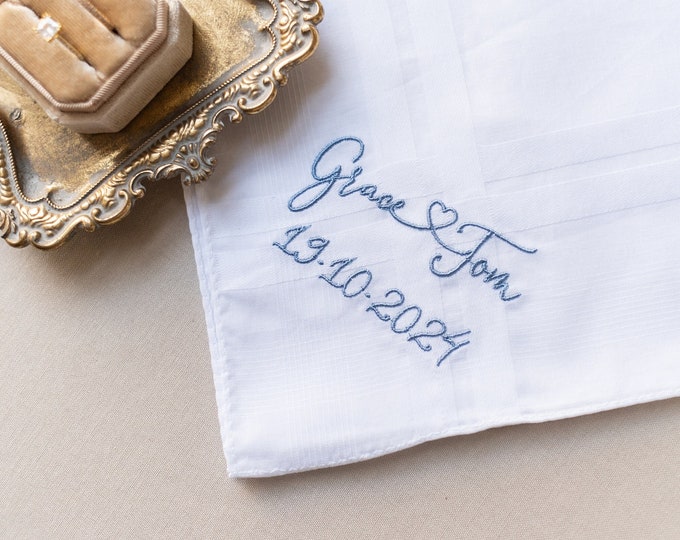 Grace ♡ Tom
19.10.2024